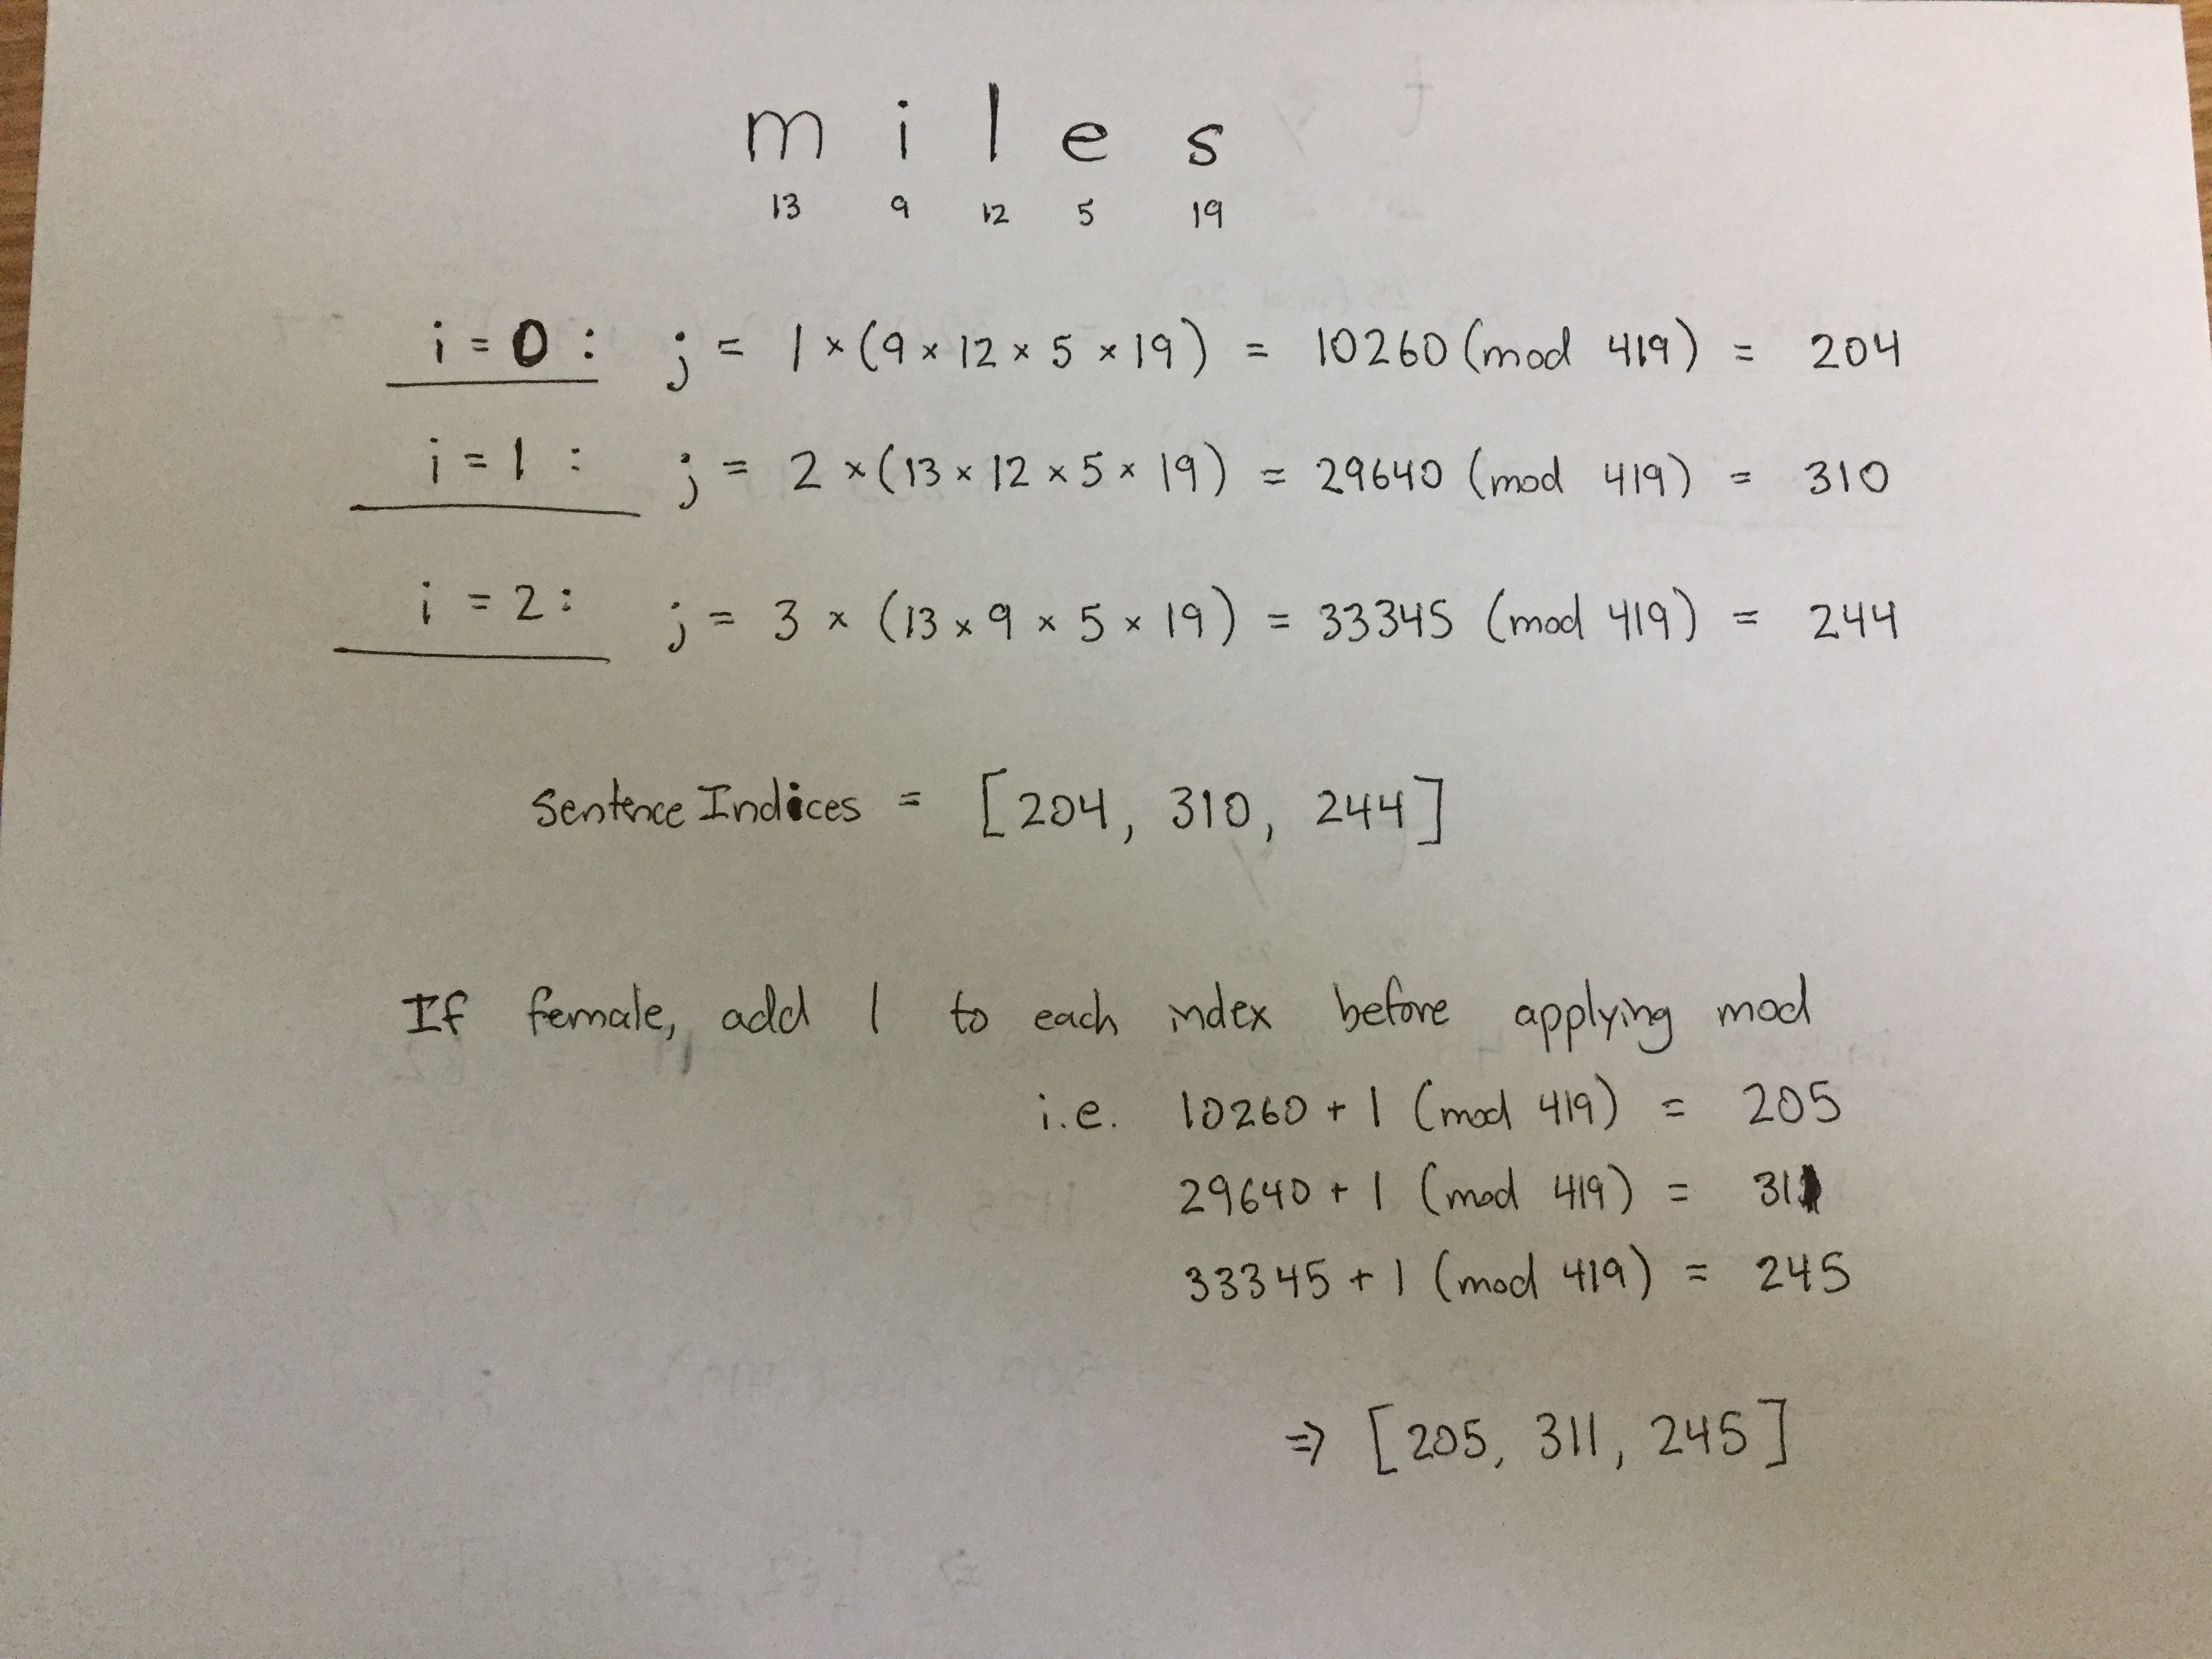 m i l e s
13 9 12 5 19
i = 0 : j = 1 × (9 × 12 × 5 × 19) = 10260 (mod 419) = 204
i = 1 : j = 2 × (13 × 12 × 5 × 19) = 29640 (mod 419) = 310
i = 2 : j = 3 × (13 × 9 × 5 × 19) = 33345 (mod 419) = 244
Sentence Indices = [204, 310, 244]
If female, add 1 to each index before applying mod
i.e. 10260 + 1 (mod 419) = 205
29640 + 1 (mod 419) = 311
33345 + 1 (mod 419) = 245
⇒ [205, 311, 245]